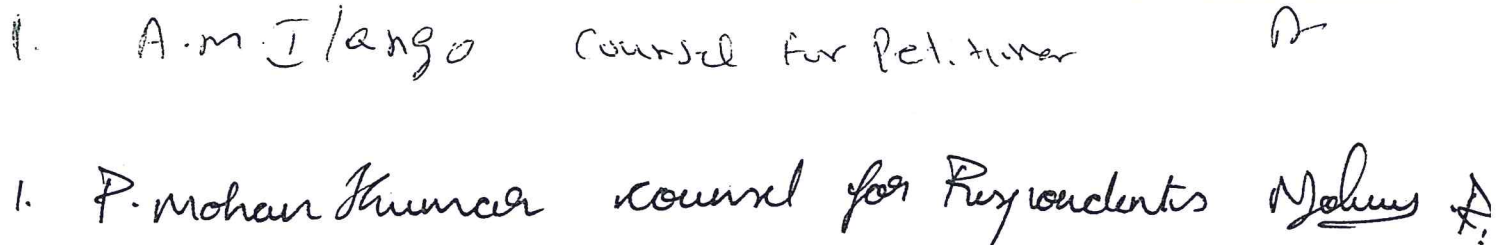 1. A.M. Ilango Counsel for Petitioner
1. P. Mohan Kumar counsel for Respondents